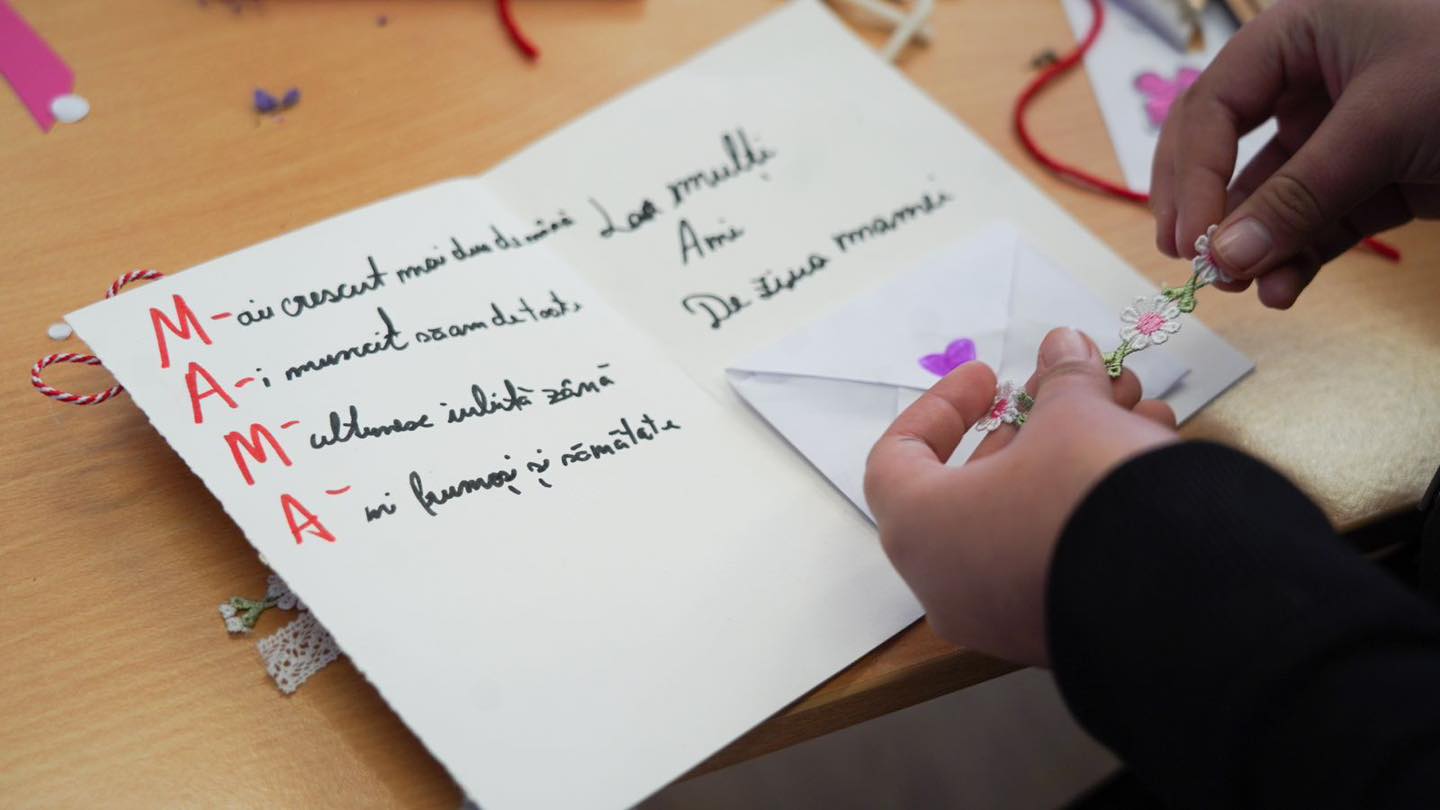 M-ai crescut mai dus de mână
A-i muncit să am de toate
M- ultumesc iubită zână
A- ni frumoși și sănătate
La mulți
Ani
De ziua mamei